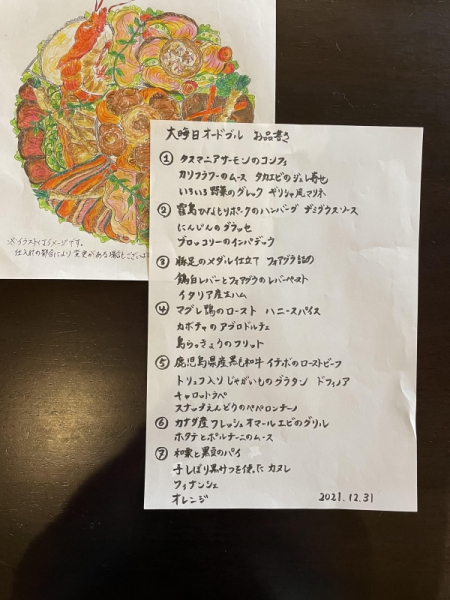 ※イラストはイメージです。
仕入状の都合により変更がある場合もござい
大晦日オードブル お品書き
① タスマニアサーモンのコンフィ
カリフラワーのムース タカエビのジュレ寄せ
いろいろ野菜のグレック ギリシャ風マリネ
② 霧島ひなもりポークのハンバーグ デミグラスソース
にんじんのグラッセ
ブロッコリーのインパデック
③ 豚足のメダル仕立て フォアグラ詰め
鶏白レバーとフォアグラのレバーペースト
イタリア産生ハム
④ マグレ鴨のロースト ハニースパイス
カボチャのアグロドルチェ
島らっきょうのフリット
⑤ 鹿児島県産黒毛和牛イチボのローストビーフ
トリュフ入りじゃがいものグラタン ドフィノア
キャロットラペ
スナップえんどうのペペロンチーノ
⑥ カナダ産フレッシュオマールエビのグリル
ホタテとポルチーニのムース
⑦ 和栗と黒豆のパイ
手しぼり黒みつを使った カヌレ
フィナンシェ
オレンジ
2021.12.31